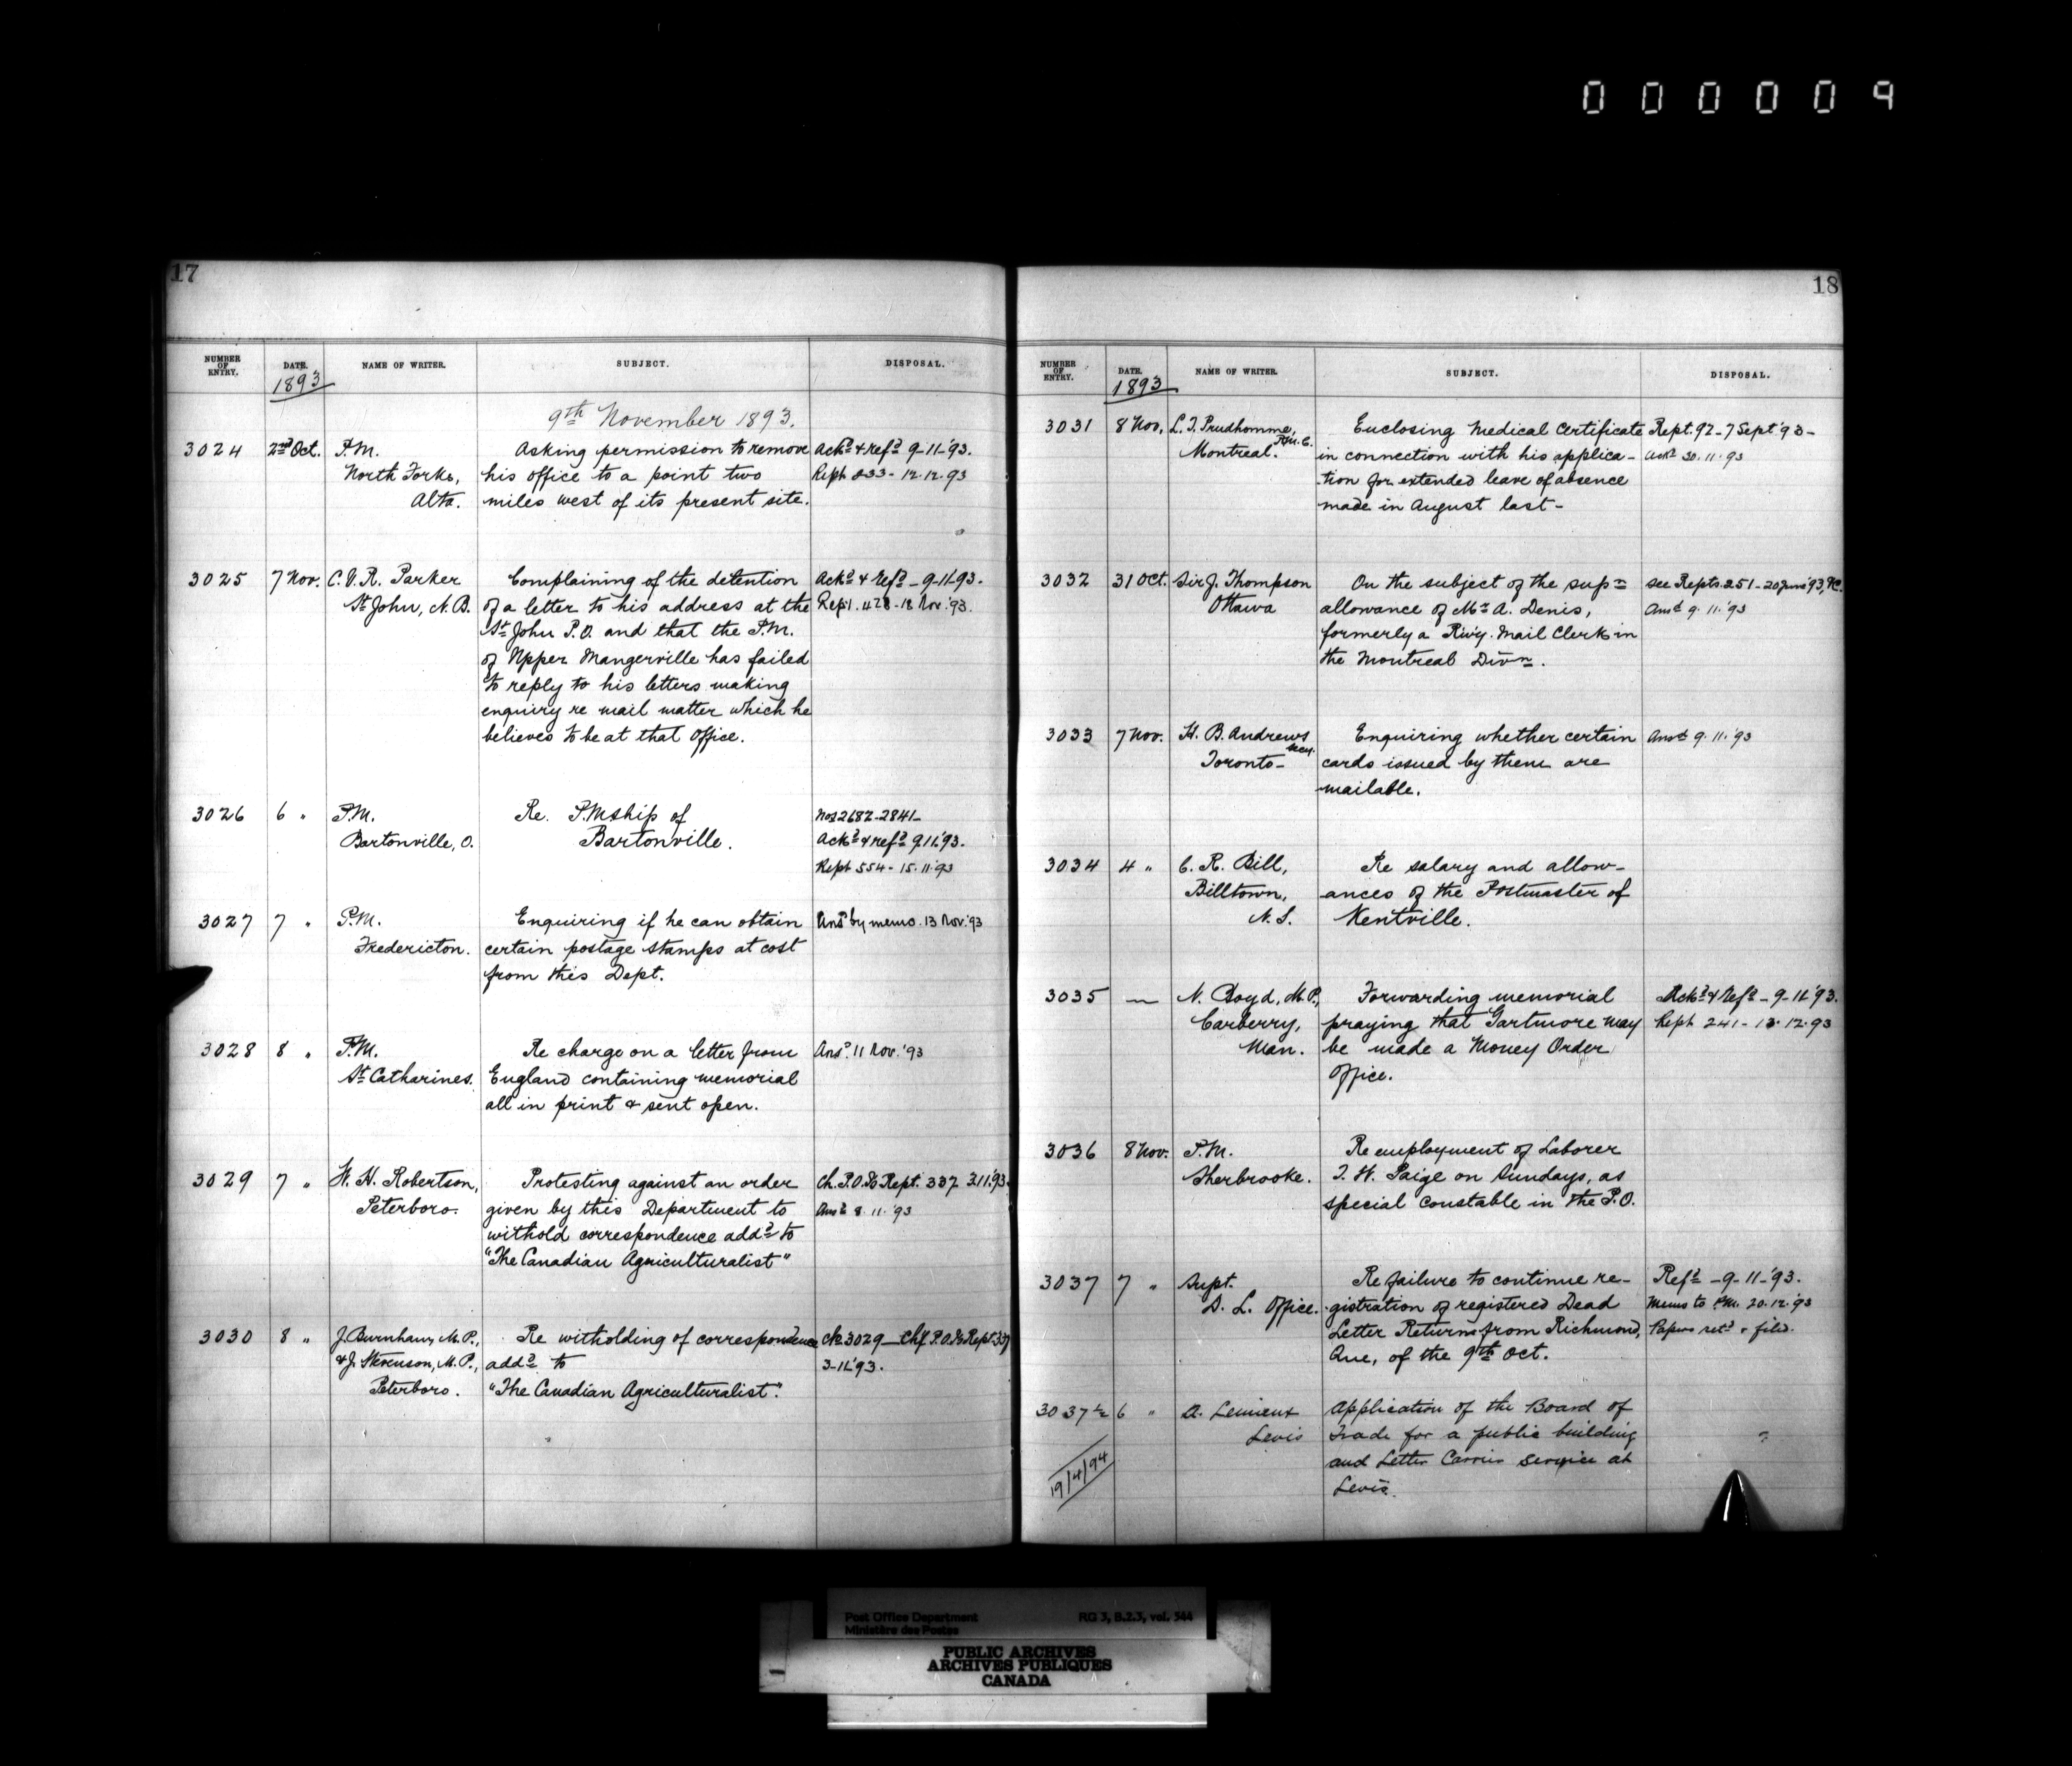 000009
17
NUMBER OF ENTRY. DATE. NAME OF WRITER. SUBJECT. DISPOSAL.
1893
9th November 1893.
3024 2nd Oct. P.M. Asking permission to remove Ackd & refd 9-11-93.
North Forks, his office to a point two Rept 233 - 12.12.93
Alta. miles west of its present site.
3025 7 Nov. C.V.R. Parker Complaining of the detention Ackd & Refd - 9-11-93.
St John, N.B. of a letter to his address at the Rept. 428 - 18 Nov. '93.
St John P.O. and that the P.M.
of Upper Mangerville has failed
to reply to his letters making
enquiry re mail matter which he
believes to be at that Office.
3026 6 " P.M. Re. P.Mship of Nos 2682-2841-
Bartonville, O. Bartonville. Ackd & refd 9.11.'93.
Rept 554 - 15.11.'93
3027 7 " P.M. Enquiring if he can obtain Ansd by memo. 13 Nov. '93
Fredericton. certain postage stamps at cost
from this Dept.
3028 8 " P.M. Re charge on a letter from Ansd. 11 Nov. '93
St Catharines. England containing memorial
all in print & sent open.
3029 7 " W. H. Robertson, Protesting against an order Ch. P.O. Rept. 337 3.11.93.
Peterboro. given by this Department to Ansd 8.11.'93
withold correspondence addd to
"The Canadian Agriculturalist"
3030 8 " J. Burnham, M.P., Re witholding of correspondence 3029 - Chf P.O. Rept. 337
& J. Stevenson, M.P., addd to 3-11-'93.
Peterboro. "The Canadian Agriculturalist".
18
NUMBER OF ENTRY. DATE. NAME OF WRITER. SUBJECT. DISPOSAL.
1893
3031 8 Nov. L. I. Prudhomme, Enclosing Medical Certificate Rept. 92 - 7 Sept '93 -
R.M.C.
Montreal. in connection with his applica- Ansd 30.11.93
tion for extended leave of absence
made in August last -
3032 31 Oct. Sir J. Thompson On the subject of the supn see Repts. 251 - 20 June '93, &c.
Ottawa allowance of Mr A. Denis, Ansd 9.11.'93
formerly a Rwy. Mail Clerk in
the Montreal Divn.
3033 7 Nov. H. B. Andrews Enquiring whether certain Ansd 9.11.'93
Secy.
Toronto - cards issued by them are
mailable.
3034 4 " C. R. Bill, Re salary and allow-
Billtown, ances of the Postmaster of
N.S. Kentville.
3035 — N. Boyd, M.P., Forwarding memorial Ackd & Refd - 9-11-'93.
Carberry, praying that Gartmore may Rept 241 - 13.12.93
Man. be made a Money Order
Office.
3036 8 Nov. P.M. Re employment of Laborer
Sherbrooke. T. W. Paige on Sundays, as
special constable in the P.O.
3037 7 " Supt. Re failure to continue re- Refd - 9-11-'93.
D. L. Office. gistration of registered Dead Memo to P.M. 20.12.'93
Letter Returns from Richmond, Papers retd & filed.
Que, of the 9th Oct.
3037½ 6 " A. Lemieux Application of the Board of
Levis Trade for a public building
19/4/94 and Letter Carrier Service at
Levis.
Post Office Department RG 3, B.2.3, vol. 544
Ministère des Postes
PUBLIC ARCHIVES
ARCHIVES PUBLIQUES
CANADA